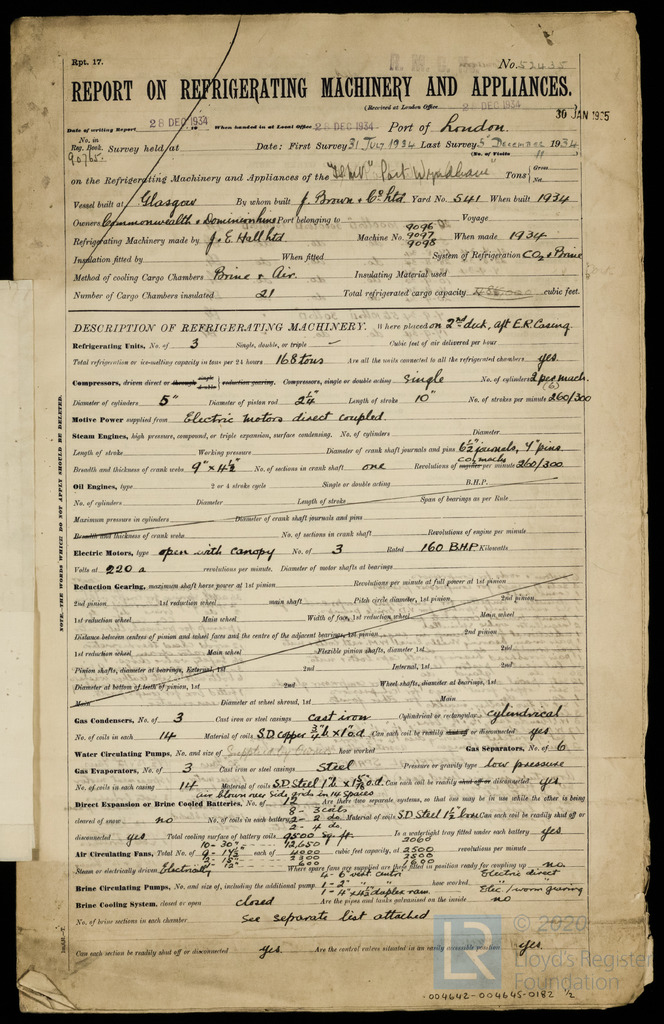 Rpt. 17.
No. 52435
REPORT ON REFRIGERATING MACHINERY AND APPLIANCES.
(Received at London Office 28 DEC 1934
30 JAN 1935
Date of writing Report 28 DEC 1934 When handed in at Local Office 28 DEC 1934 Port of London.
No. in Reg. Book. 90765. Survey held at Date: First Survey 31 July 1934 Last Survey 5 December 1934
(No. of Visits 11)
on the Refrigerating Machinery and Appliances of the Port Wyndham Tons Gross Net
Vessel built at Glasgow By whom built J. Brown & Co Ltd Yard No. 541 When built 1934
Owners Commonwealth & Dominion Line Port belonging to Voyage
Refrigerating Machinery made by J & E Hall Ltd Machine No. 9096 9097 9098 When made 1934
Insulation fitted by When fitted System of Refrigeration CO2 & Brine
Method of cooling Cargo Chambers Brine & Air. Insulating Material used
Number of Cargo Chambers insulated 21 Total refrigerated cargo capacity cubic feet.
DESCRIPTION OF REFRIGERATING MACHINERY. Where placed on 2nd deck, aft E.R. Casing
Refrigerating Units, No. of 3 Single, double, or triple - Cubic feet of air delivered per hour
Total refrigeration or ice-melting capacity in tons per 24 hours 168 tons Are all the units connected to all the refrigerated chambers yes
Compressors, driven direct or through single double reduction gearing. Compressors, single or double acting Single No. of cylinders 2 per mach. (6)
Diameter of cylinders 5" Diameter of piston rod 2¼" Length of stroke 10" No. of strokes per minute 260/300
Motive Power supplied from Electric motors direct coupled
Steam Engines, high pressure, compound, or triple expansion, surface condensing. No. of cylinders Diameter
Length of stroke Working pressure Diameter of crank shaft journals and pins 6½" journals, 7" pins
Breadth and thickness of crank webs 9" x 4½" No. of sections in crank shaft one Revolutions of engine per minute 260/300
Oil Engines, type 2 or 4 stroke cycle Single or double acting B.H.P.
No. of cylinders Diameter Length of stroke Span of bearings as per Rule
Maximum pressure in cylinders Diameter of crank shaft journals and pins
Breadth and thickness of crank webs No. of sections in crank shaft Revolutions of engine per minute
Electric Motors, type open with canopy No. of 3 Rated 160 B.H.P. Kilowatts
Volts at 220 a revolutions per minute. Diameter of motor shafts at bearings
Reduction Gearing, maximum shaft horse power at 1st pinion Revolutions per minute at full power at 1st pinion
2nd pinion 1st reduction wheel main shaft Pitch circle diameter, 1st pinion 2nd pinion
1st reduction wheel Main wheel Width of face, 1st reduction wheel Main wheel
Distance between centres of pinion and wheel faces and the centre of the adjacent bearings, 1st pinion 2nd pinion
1st reduction wheel Main wheel Flexible pinion shafts, diameter 1st 2nd
Pinion shafts, diameter at bearings, External, 1st 2nd Internal, 1st 2nd
Diameter at bottom of teeth of pinion, 1st 2nd Wheel shafts, diameter at bearings, 1st
Main Diameter at wheel shroud, 1st Main
Gas Condensers, No. of 3 Cast iron or steel casings cast iron Cylindrical or rectangular cylindrical
No. of coils in each 14 Material of coils S.D. copper ¾" b x 1" o.d Can each coil be readily shut off or disconnected yes
Water Circulating Pumps, No. and size of how worked Gas Separators, No. of 6
Gas Evaporators, No. of 3 Cast iron or steel casings Steel Pressure or gravity type low pressure
No. of coils in each casing 14 Material of coils S.D. Steel Can each coil be readily shut off or disconnected yes
Direct Expansion or Brine Cooled Batteries, No. of 12 Are there two separate systems, so that one may be in use while the other is being
cleared of snow no No. of coils in each battery 8 - 3 coils 2 - 2 do 2 - 4 do Material of coils S.D Steel 1½" bore Can each coil be readily shut off or
disconnected yes Total cooling surface of battery coils Sq. ft. Is a watertight tray fitted under each battery yes
Air Circulating Fans, No. of each of cubic feet capacity, at revolutions per minute
Steam or electrically driven Electrically Where spare fans are supplied are these fitted in position ready for coupling up no
Brine Circulating Pumps, No. and size of, including the additional pump how worked Electric direct
Elec / worm gearing
Brine Cooling System, closed or open closed Are the pipes and tanks galvanised on the inside no
No. of brine sections in each chamber See separate list attached
Can each section be readily shut off or disconnected yes Are the control valves situated in an easily accessible position yes
NOTE.—THE WORDS WHICH DO NOT APPLY SHOULD BE DELETED.
© 2020
LR
Lloyd's Register
Foundation
004642-004645-0182 ½